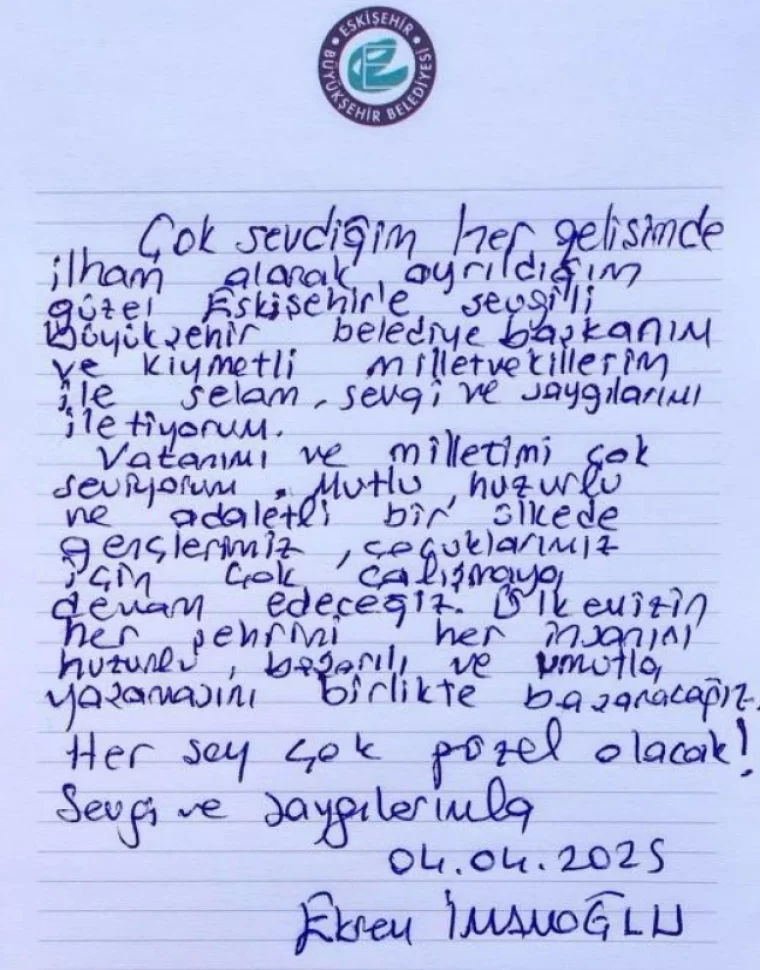 ESKİŞEHİR
BÜYÜKŞEHİR BELEDİYESİ
Çok sevdiğim her gelişimde
ilham alarak ayrıldığım
güzel Eskişehir'le sevgili
Büyükşehir belediye başkanım
ve kıymetli milletvekillerim
ile selam, sevgi ve saygılarımı
iletiyorum.
Vatanımı ve milletimi çok
seviyorum. Mutlu, huzurlu
ve adaletli bir ülkede
gençlerimiz, çocuklarımız
için çok çalışmaya
devam edeceğiz. Ülkemizin
her şehrini her insanını
huzurlu, başarılı ve umutla
yaşamasını birlikte başaracağız.
Her şey çok güzel olacak!
Sevgi ve saygılarımla
04.04.2025
Ekrem İMAMOĞLU